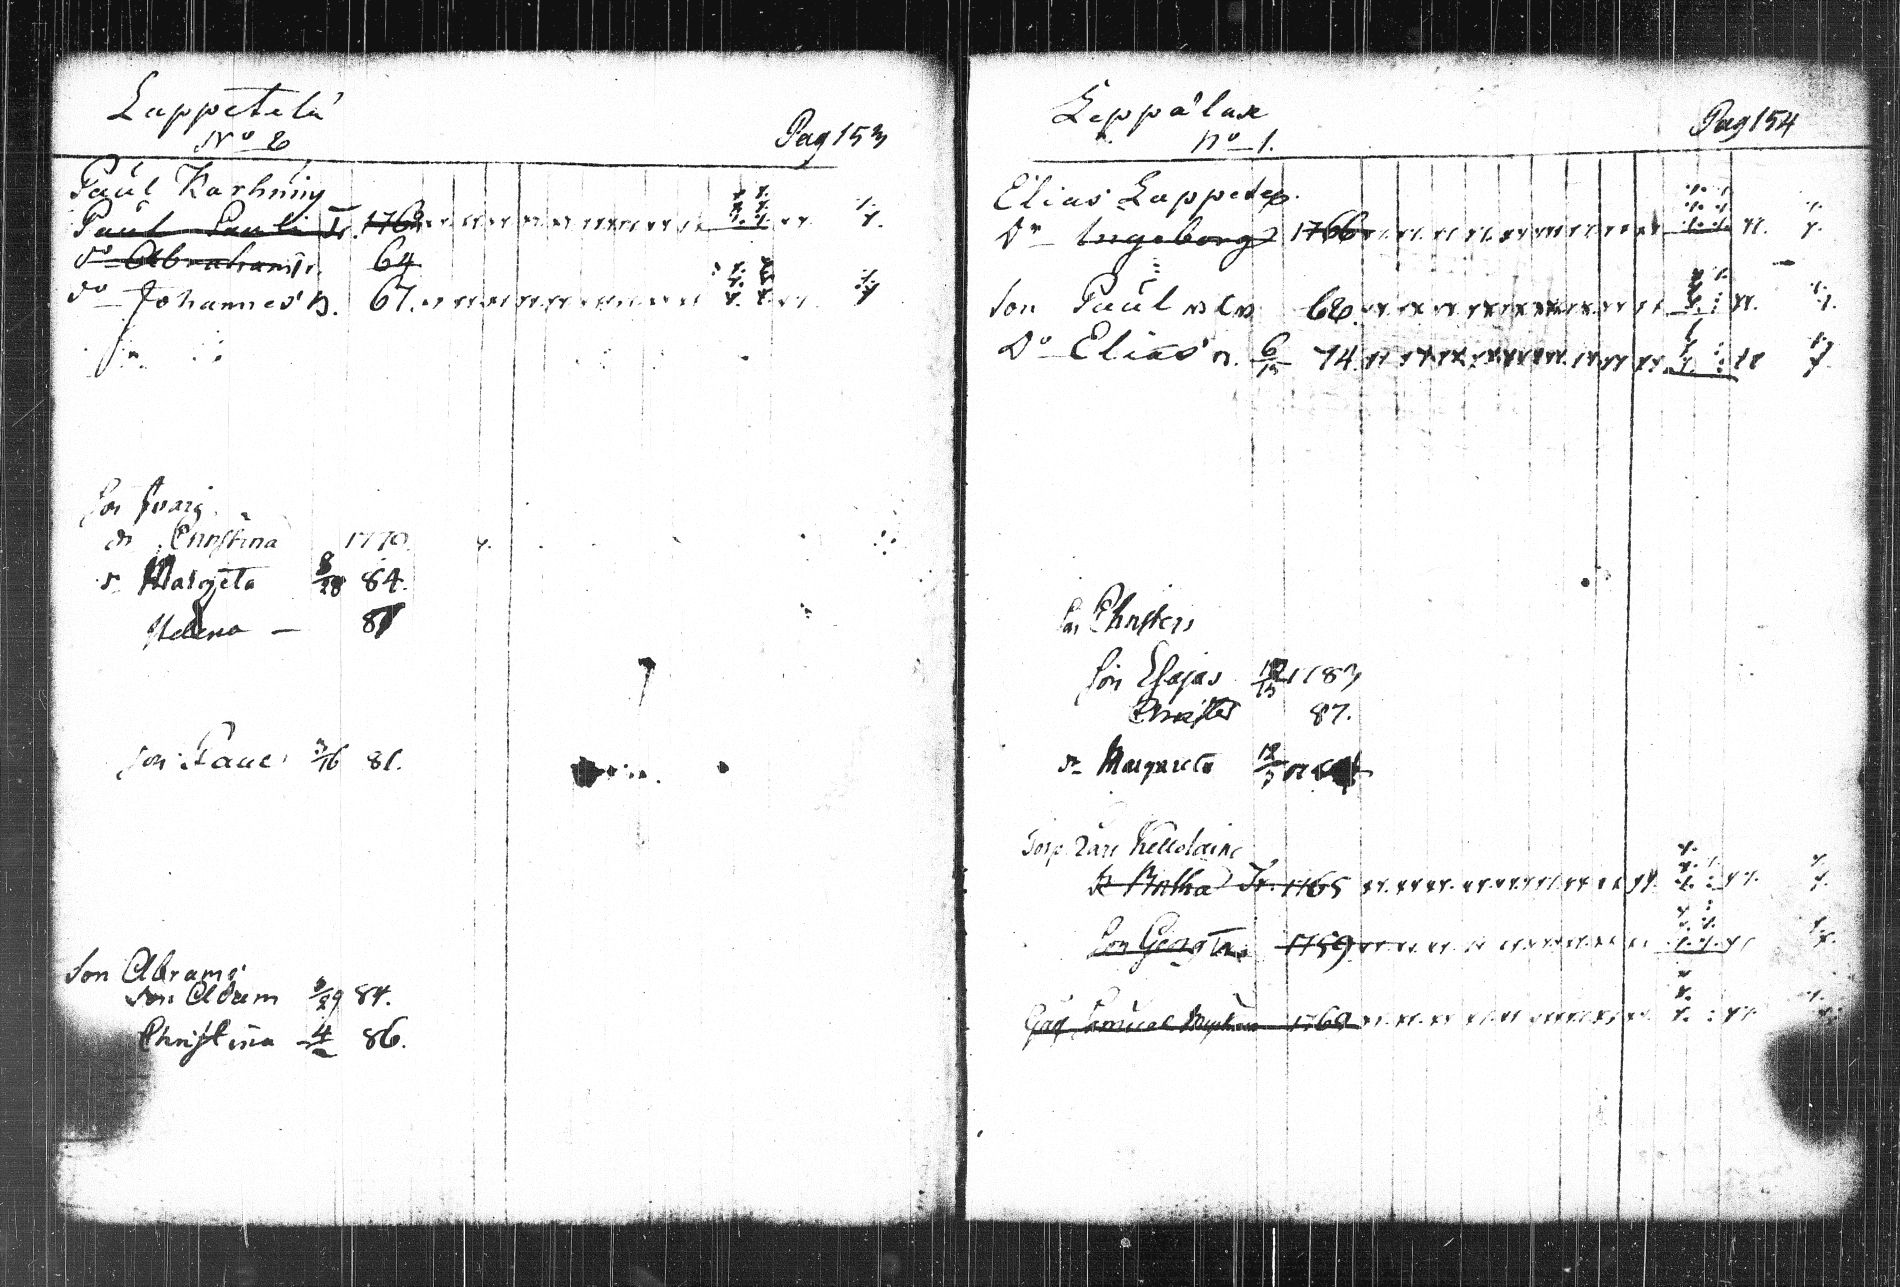 Lappetelä
No 2
Pag 153
Paul Karhuin
Paul Pauli Tr. 1762
do Abraham Tr. 64
do Johannes n. 67.
Son Ivari
dr Christina 1770
dr Margeta 8/28 84.
Helena — 87
Son Paul 3/16 81.
Son Abrams
Son Adam 3/29 84.
Christina 4 86.
Leppälax
No 1.
Pag 154
Elias Lappetel.
Dr Ingeborg 1766
Son Paul 62.
Do Elias n. 6/12 74.
Son Christers
Son Esajas 1783
Christer 87.
dr Margareta 12/5
Lars
Dr Britha Tr. 1765
Son Georg Tr. 1759
Samuel 1769